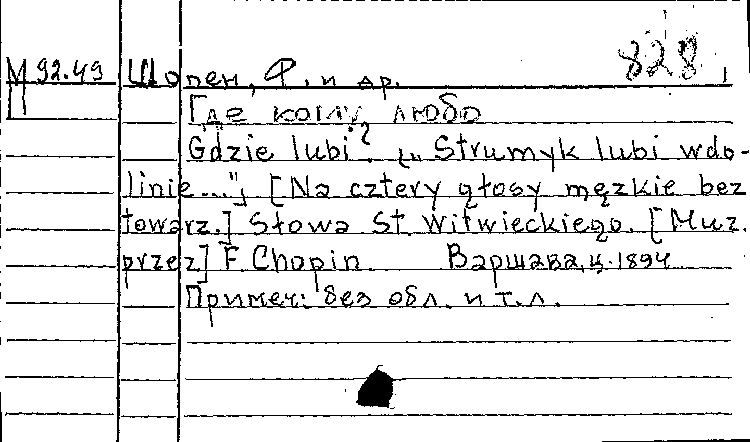 828
М 92.49 Шопен, Ф. и др.
П
Где кому любо
Gdzie lubi? („Strumyk lubi wdo-
linie..."), [Na cztery głosy męzkie bez
towarz.] Słowa St. Witwieckiego. [Muz.
przez] F. Chopin. Варшава, ц. 1894
Примеч: без обл. и т.л.